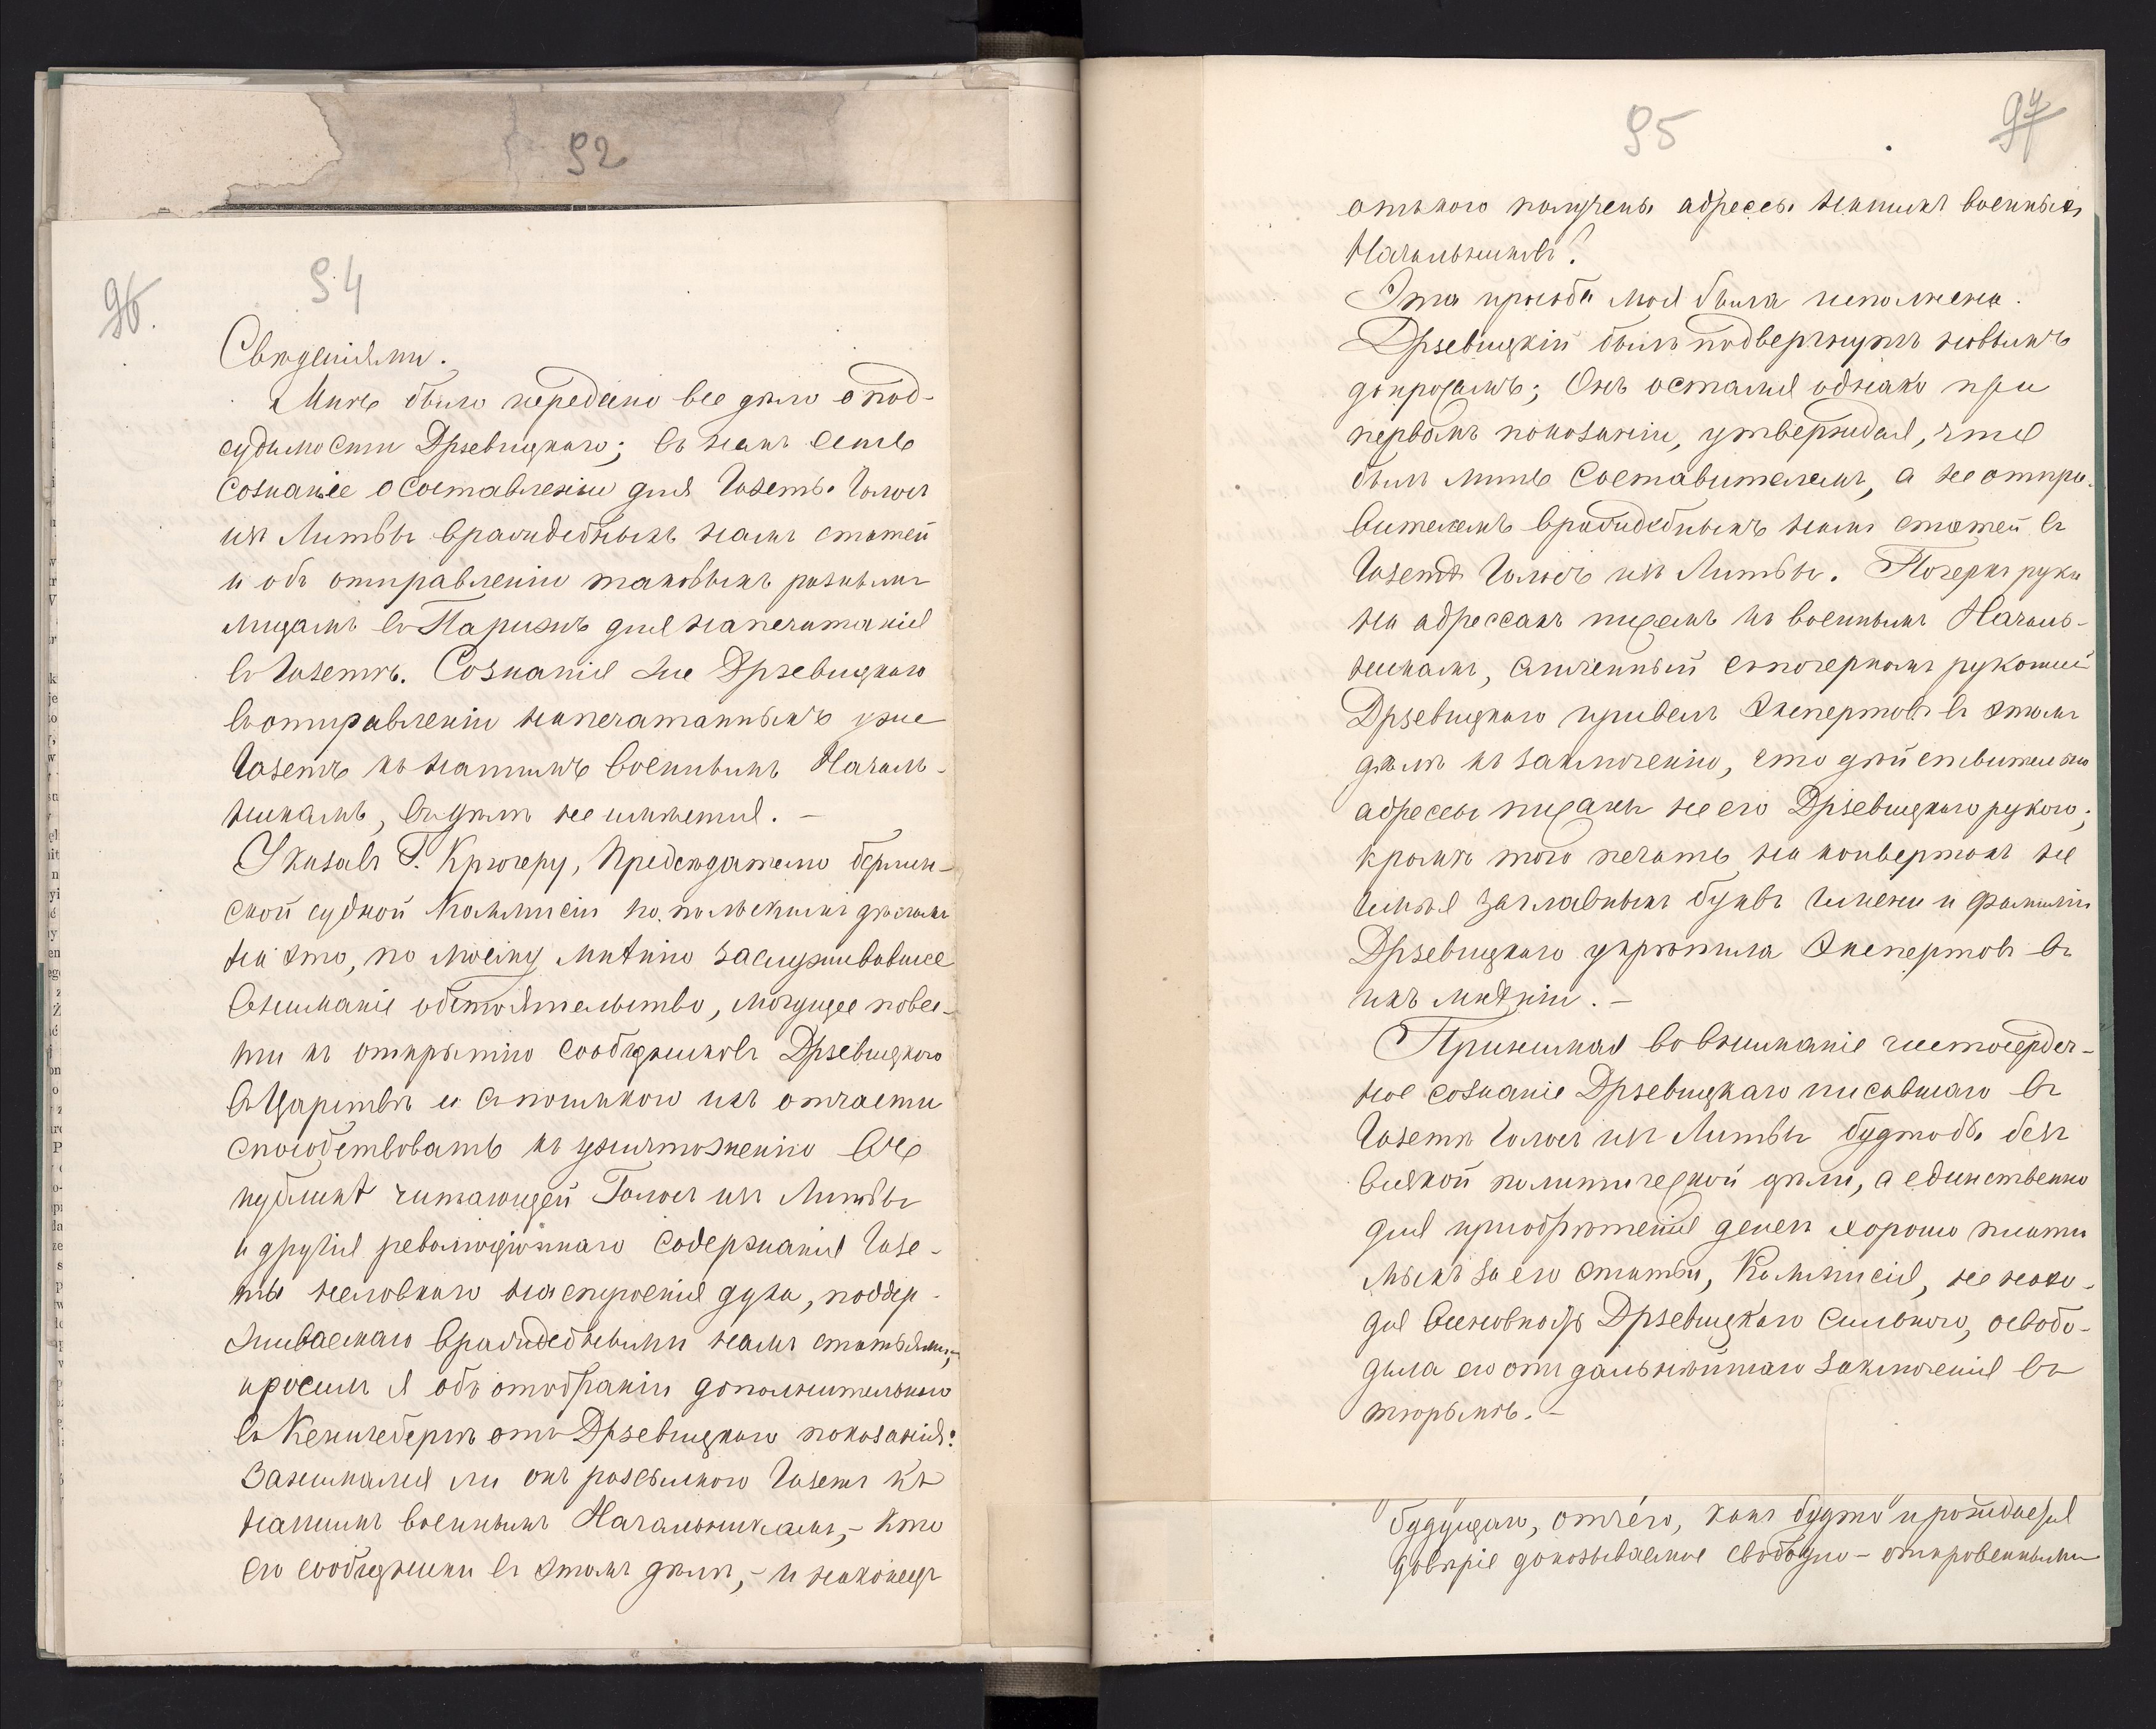 92
96.
94
Свѣденіями.
Мнѣ было передано все дѣло о под-
судимости Дрзевицкаго; въ немъ есть
сознаніе о составленіи для Газеты Голосъ
изъ Литвы враждебныхъ намъ статей
и объ отправленіи таковыхъ разнымъ
лицамъ въ Парижъ для напечатанія
въ Газетѣ. Сознанія же Дрзевицкаго
въ отправленіи напечатанныхъ уже
Газетъ къ нашимъ военнымъ Началь-
никамъ, въ дѣлѣ не имѣется. —
Указавъ Г. Крюгеру, Предсѣдателю берлин-
ской судной Коммисіи по польскимъ дѣламъ
на это, по моему мнѣнію заслуживавшее
вниманіе обстоятельство, могущее повес-
ти къ открытію сообщниковъ Дрзевицкаго
въ Царствѣ и съ поимкою ихъ отчасти
способствовать къ уничтоженію въ
публикѣ читающей Голосъ изъ Литвы
и другія революціоннаго содержанія Газе-
ты неловкаго настроенія духа, поддер-
живаемаго враждебными намъ статьями,
просилъ я объ отобраніи дополнительнаго
въ Кенигсбергѣ отъ Дрзевицкаго показанія:
Занимался ли онъ разсылкою Газетъ къ
нашимъ военнымъ Начальникамъ, – кто
его сообщники въ этомъ дѣлѣ, – и наконецъ
95
94
отъ кого получены адресы нашихъ военныхъ
Начальниковъ?
Эта просьба моя была исполнена.
Дрзевицкій былъ подвергнутъ новымъ
допросамъ; Онъ остался однако при
первомъ показаніи, утверждая, что
былъ лишь составителемъ, а не отпра-
вителемъ враждебныхъ намъ статей въ
Газетѣ Голосъ изъ Литвы. Почеркъ руки
на адрессахъ писемъ къ военнымъ Началь-
никамъ, сличенный съ почеркомъ рукописи
Дрзевицкаго привелъ Экспертовъ въ этомъ
дѣлѣ къ заключенію, что дѣйствительно
адрессы писаны не его Дрзевицкаго рукою;
кромѣ того печать на конвертахъ не
имѣя заглавныхъ буквъ имени и фамиліи
Дрзевицкаго укрѣпила Экспертовъ въ
ихъ мнѣніи. —
Принимая во вниманіе чистосердеч-
ное сознаніе Дрзевицкаго писавшаго въ
Газетѣ Голосъ изъ Литвы будтобы безъ
всякой политической цѣли, а единственно
для пріобрѣтенія денегъ хорошо плати
мыхъ за его статьи, Коммисія, не нахо-
дя виновность Дрзевицкаго сильною, освобо-
дила его отъ дальнѣйшаго заключенія въ
тюрьмѣ. —
будущаго, отчего, какъ будто и рождается
довѣріе доказываемое свободно – откровенными